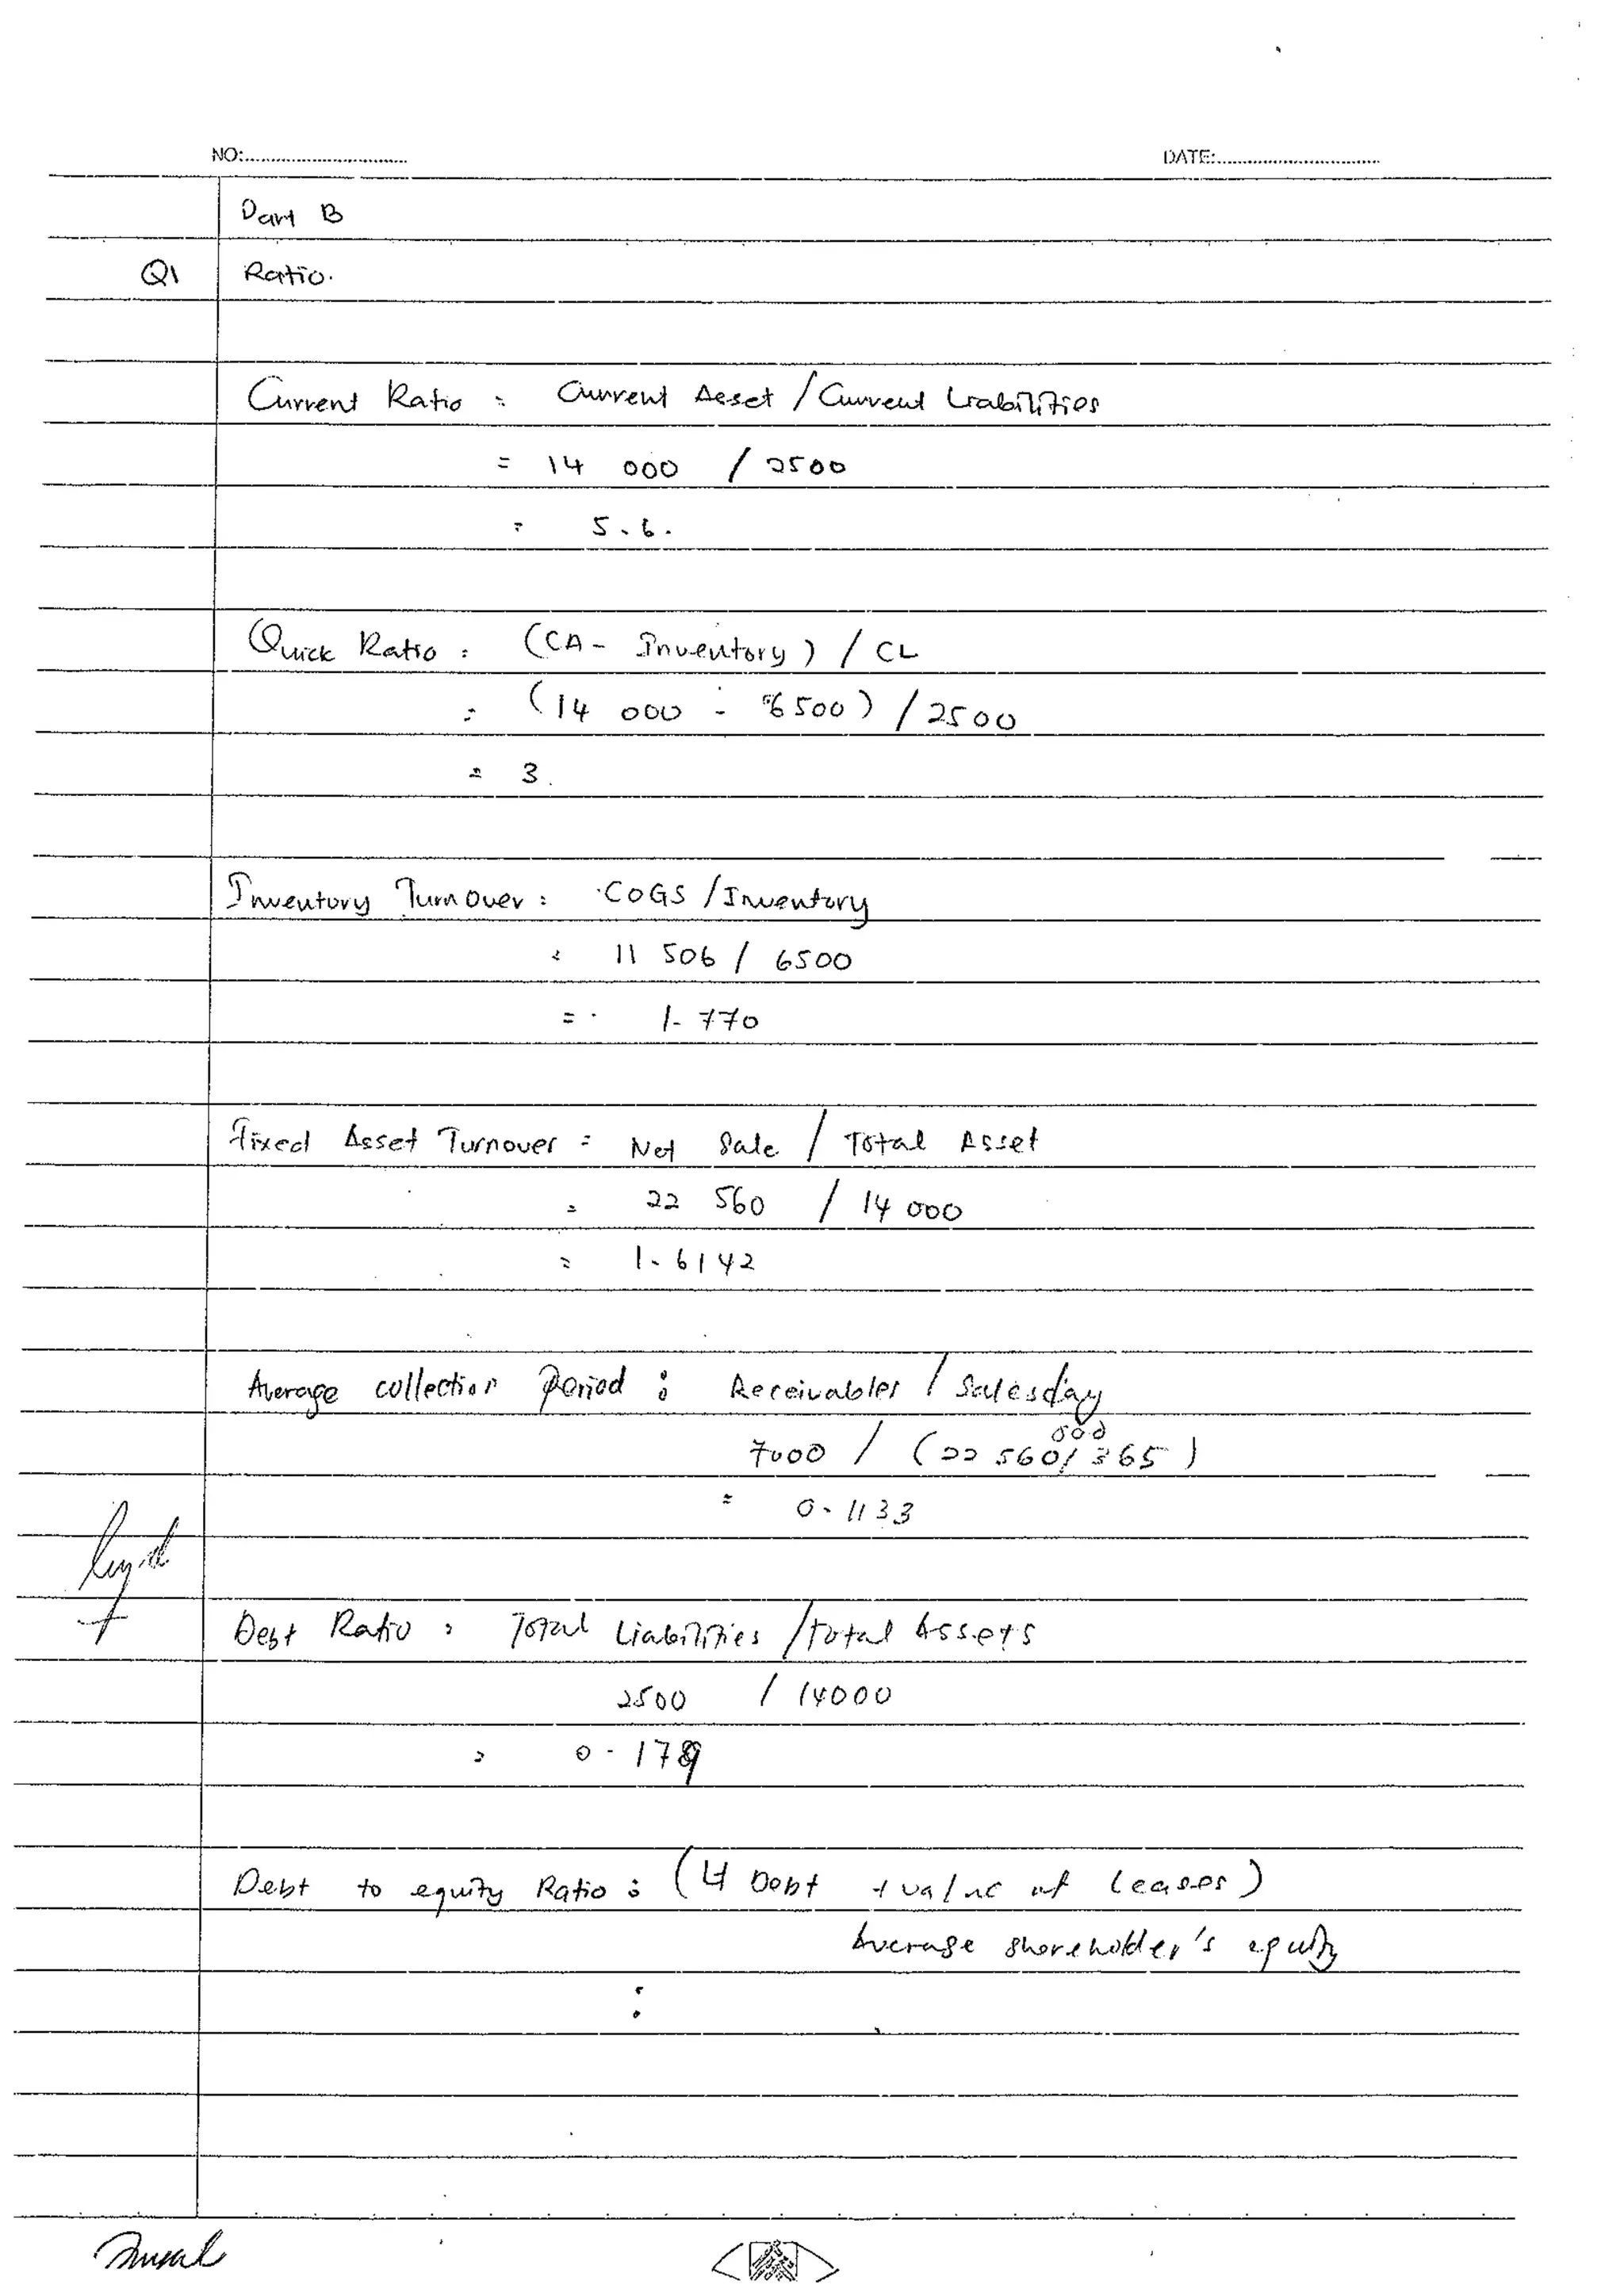 NO:............................... DATE:...............................
Part B
Q1 Ratio.
Current Ratio : Current Asset / Current Liabilities
= 14 000 / 2500
= 5.6.
Quick Ratio : (CA - Inventory) / CL
= (14 000 - 6500) / 2500
= 3.
Inventory Turn Over : COGS / Inventory
= 11 506 / 6500
= 1.770
Fixed Asset Turnover = Net Sale / Total Asset
= 22 560 / 14 000
= 1.6142
Average collection Period : Receivables / Salesday
000
7000 / (22 560/ 365)
= 0.1133
Debt Ratio : Total Liabilities / total Assets
2500 / 14000
= 0.179
Debt to equity Ratio : (Lt Debt + value of leases)
Average shareholder's equity
: